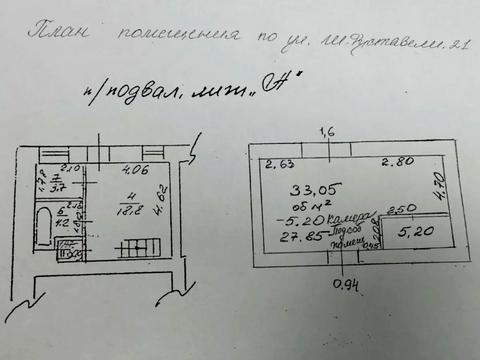 План помещения по ул. Ш. Руставели. 21
п/подвал, лит „Н"
2.10
4.06
1.78
7
3.7
4
18,8
4.62
2.16
6
4.2
1,6
2.63
2.80
33,05
об м²
4.70
- 5.20 камера
2.50
27.85 Подсоб
помещ
2.08
5,20
0.45
0.94